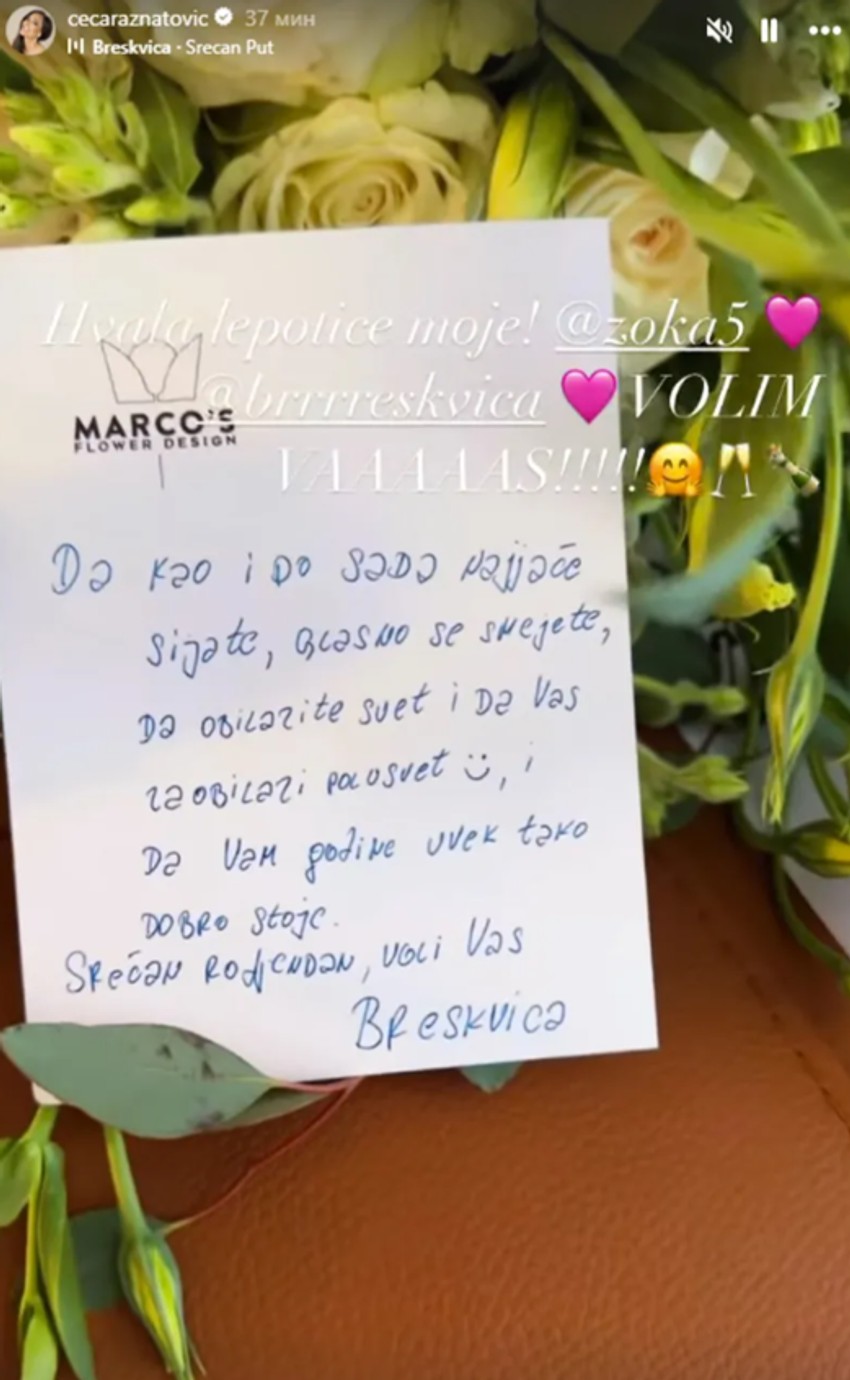 cecaraznatovic 37 мин
Breskvica · Srecan Put
Hvala lepotice moje! @zoka5
@brrrreskvica VOLIM
VAAAAAS!!!!!
MARCO'S
FLOWER DESIGN
Da kao i do sada najjače
sijate, glasno se smejete,
da obilazite svet i da Vas
zaobilazi polusvet :), i
da Vam godine uvek tako
dobro stoje.
Srećan rodjendan, voli Vas
Breskvica